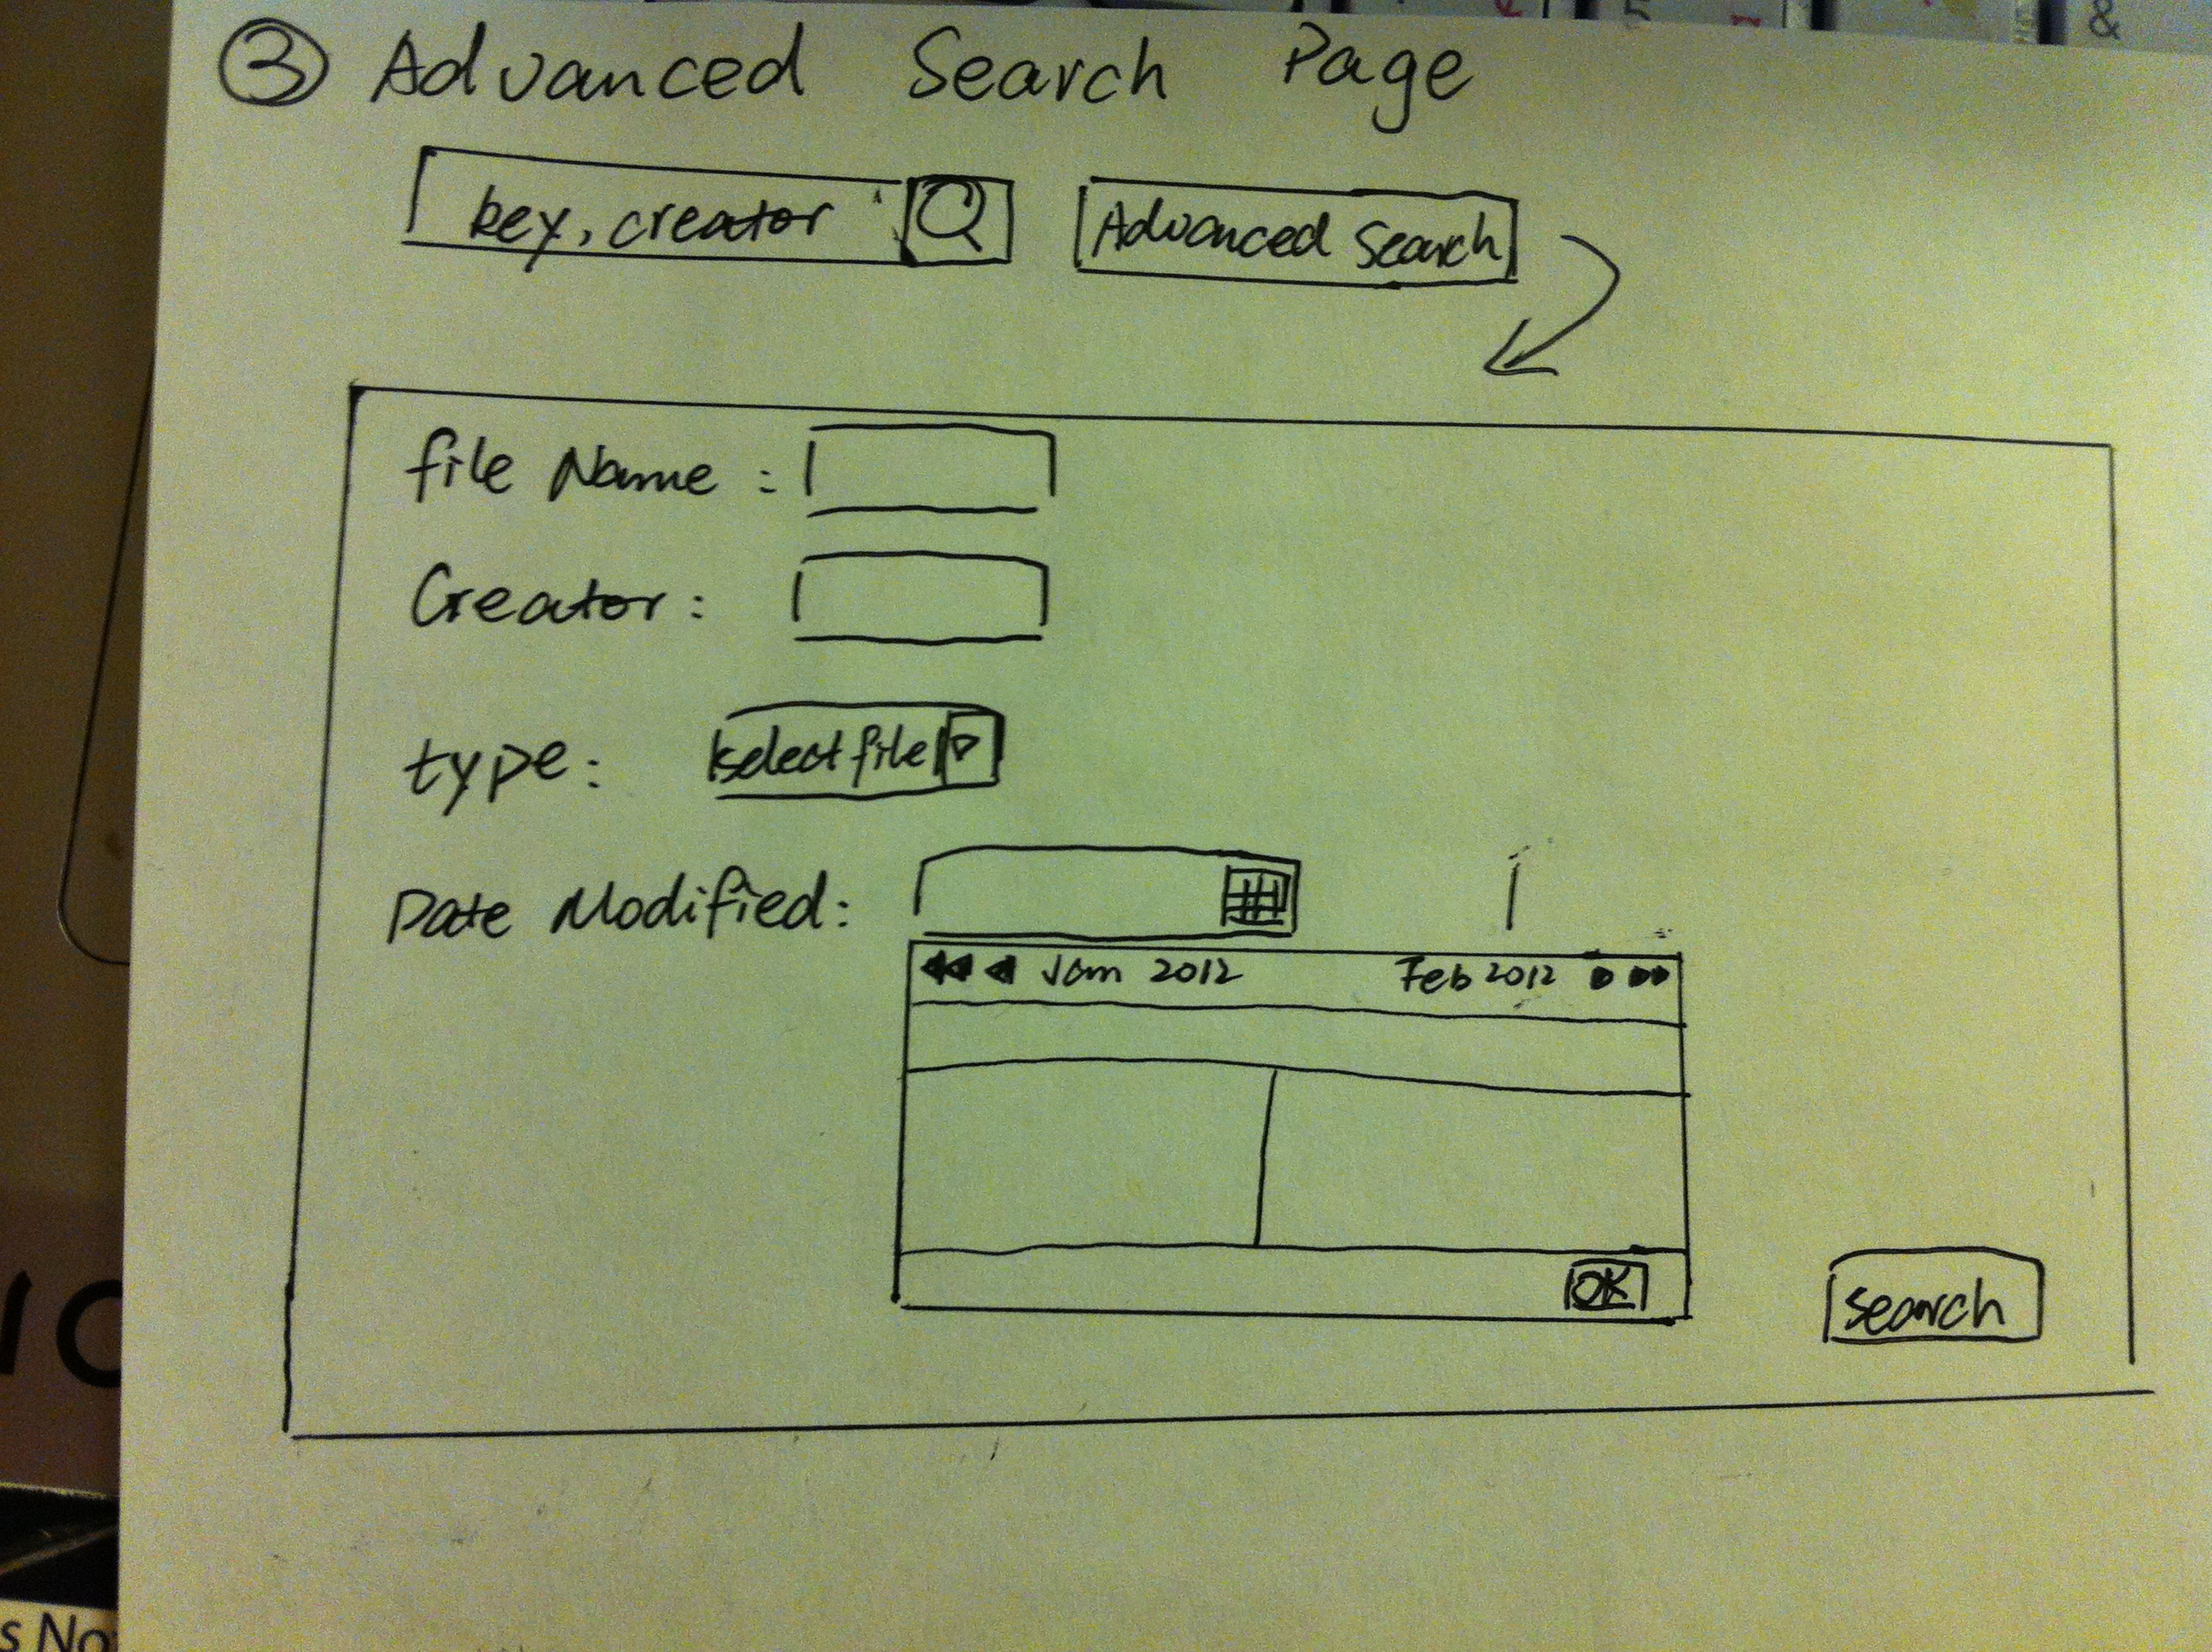 3 Advanced Search Page
key, creator
Advanced Search
File Name:
Creator:
type: select file
Date Modified:
Jan 2012 Feb 2012
OK
Search